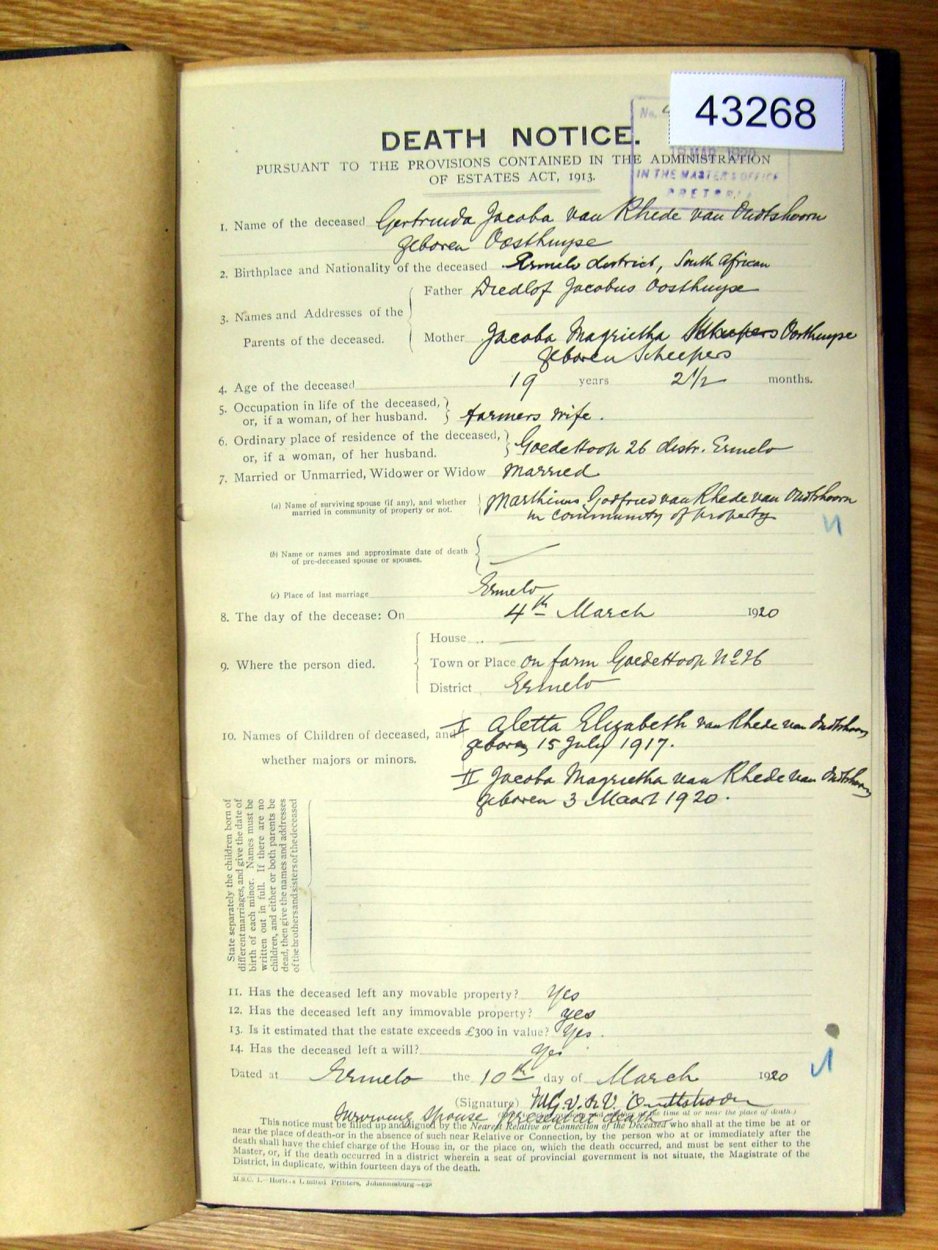 43268
No. 4
18 MAR 1920
IN THE MASTER'S OFFICE
PRETORIA
DEATH NOTICE.
PURSUANT TO THE PROVISIONS CONTAINED IN THE ADMINISTRATION
OF ESTATES ACT, 1913.
1. Name of the deceased Gertruida Jacoba van Rhede van Oudtshoorn
geboren Oosthuyse
2. Birthplace and Nationality of the deceased Ermelo district, South African
3. Names and Addresses of the Parents of the deceased.
Father Diedlof Jacobus Oosthuyse
Mother Jacoba Magrietha Scheepers Oosthuyse
geboren Scheepers
4. Age of the deceased 19 years 2 1/2 months.
5. Occupation in life of the deceased,
or, if a woman, of her husband. farmers wife.
6. Ordinary place of residence of the deceased,
or, if a woman, of her husband. Goedehoop 26 distr. Ermelo
7. Married or Unmarried, Widower or Widow Married
(a) Name of surviving spouse (if any), and whether
married in community of property or not.
Marthinus Godfried van Rhede van Oudtshoorn
in community of property
(b) Name or names and approximate date of death
of pre-deceased spouse or spouses.
(c) Place of last marriage Ermelo
8. The day of the decease: On 4th March 1920
9. Where the person died.
House
Town or Place on farm Goedehoop No 26
District Ermelo
10. Names of Children of deceased, and
whether majors or minors.
I Aletta Elizabeth van Rhede van Oudtshoorn
geboren 15 July 1917.
II Jacoba Magrietha van Rhede van Oudtshoorn
geboren 3 Maart 1920.
State separately the children born of
different marriages, and give the date of
birth of each minor. Names must be
written out in full. If there are no
children, and either or both parents be
dead, then give the names and addresses
of the brothers and sisters of the deceased
11. Has the deceased left any movable property? Yes
12. Has the deceased left any immovable property? yes
13. Is it estimated that the estate exceeds £300 in value? Yes.
14. Has the deceased left a will? Yes
Dated at Ermelo the 10th day of March 1920
(Signature) M.G. v. R. V. Oudtshoorn
Surviving spouse present at death
This notice must be filled up and signed by the Nearest Relative or Connection of the Deceased who shall at the time be at or
near the place of death—or in the absence of such near Relative or Connection, by the person who at or immediately after the
death shall have the chief charge of the House in, or the place on, which the death occurred, and must be sent either to the
Master, or, if the death occurred in a district wherein a seat of provincial government is not situate, the Magistrate of the
District, in duplicate, within fourteen days of the death.
M.S.C. 1.—Hortors Limited Printers, Johannesburg—